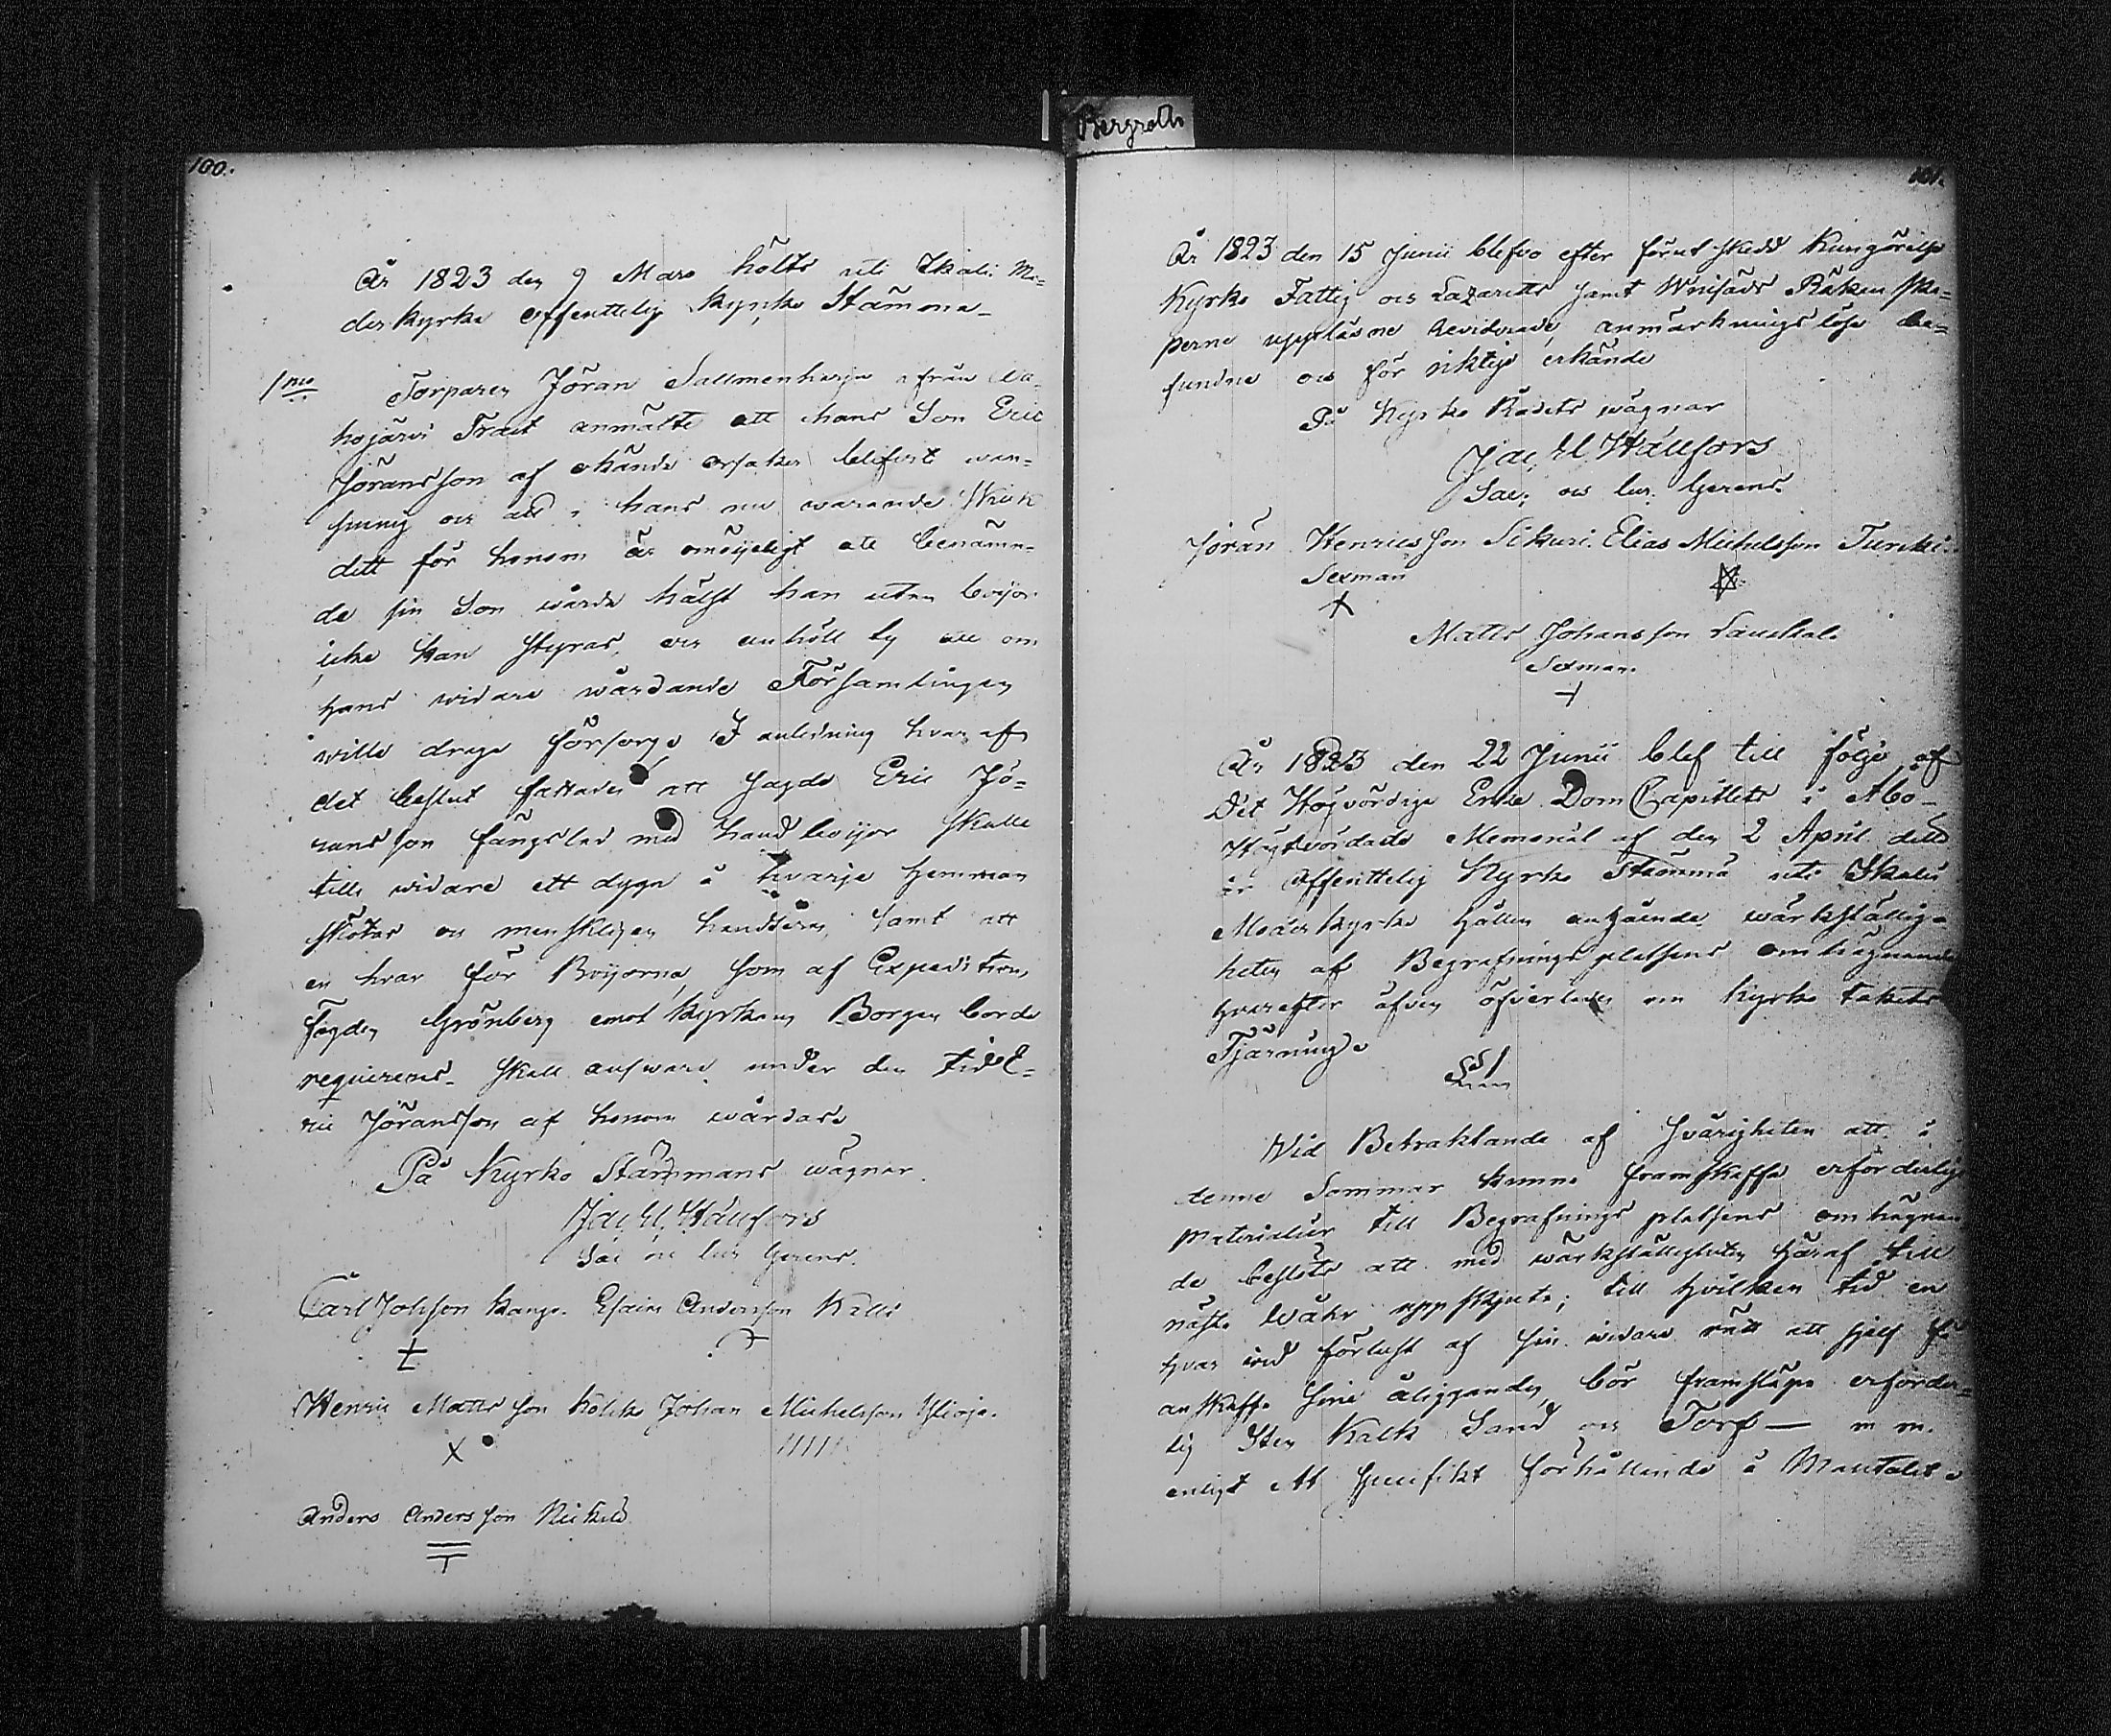 Bergroth
100.
År 1823 den 9 Mars hölts uti Ikalis Mo=
derkyrka offenttelig Kyrko Stämma_
1mo Torparen Jöran Sallmenharja ifrån
hojärvi Trakt anmälte att hans Son Eric
Jöransson af okände orsaker blifvit wan-
sinnig och att i hans nu warande
dett för honom är omöjeligt att benämn-
de sin Son wårda hälst han utan boijor
icke kan styras, och anhöll ty att om
hans widare wårdande Församlingen
wille draga försorg. I anledning hvaraf
det beslut fattades att sagde Eric Jö=
ransson fängslad med handboijor skulle
tills widare ett dygn å hvarje hemman
skötas och menskligen handteras, samt att
en hvar för Boijorna, som af Expeditions
fogden Grönberg emot kyrkans Borgen borde
requireras_ skall answara under den tid E=
ric Jöransson af honom wårdas.
På Kyrko Stämmans wägnar
Jac. El. Hällfors
Sac. och cur. Gerens.
Carl Johsson Kango. Esaias Andersson Kallis
Henric Mattsson Kölckö Johan Michelsson Ylioja.
Anders Andersson Nickilä
101.
År 1823 den 15 Junii blefvo efter förut skedd Kungörelse
Kyrko Fattig och Lazaretts samt Räken ska=
perne uppläsne reviderade, anmärkningslöse be=
fundne och för riktige erkände
På Kyrko Rådets wägnar
Jac. El. Hällfors
Sac. och cur. Gerens.
Jöran Henricsson Sikuri. Elias Michelsson Turcki.
Sexman
Matts Johansson Lauckal.
Sexman.
År 1823 den 22 Junii blef till följe af
Det Högvördige Erke Dom Capitlets i Åbo_
Högtvördade Memorial af den 2 April detta
år Offenttelig Kyrko Stämma uti Ikalis
Moderkyrka hållen angående wärkställig=
heten af Begrafnings platsens omhägnande
hvarefter äfven öfverlades om Kyrko takets
Tjärning.
§ 1
Wid Betraktande af svårigheten att i
denne Sommar kunna framskaffa erforderlige
materialier till Begrafnings platsens omhägnan
de beslöts att med wärkställigheten häraf till
nästa Wåhr uppskjuta; till hvilken tid en
hvar wid förlust af sin widare rätt att sjelf få
anskaffa sine åliggander, bör framsläpa erforder=
lig Sten Kalk Sand och Torf — m m.
enligt ett specifikt förhållande å Mantalet.